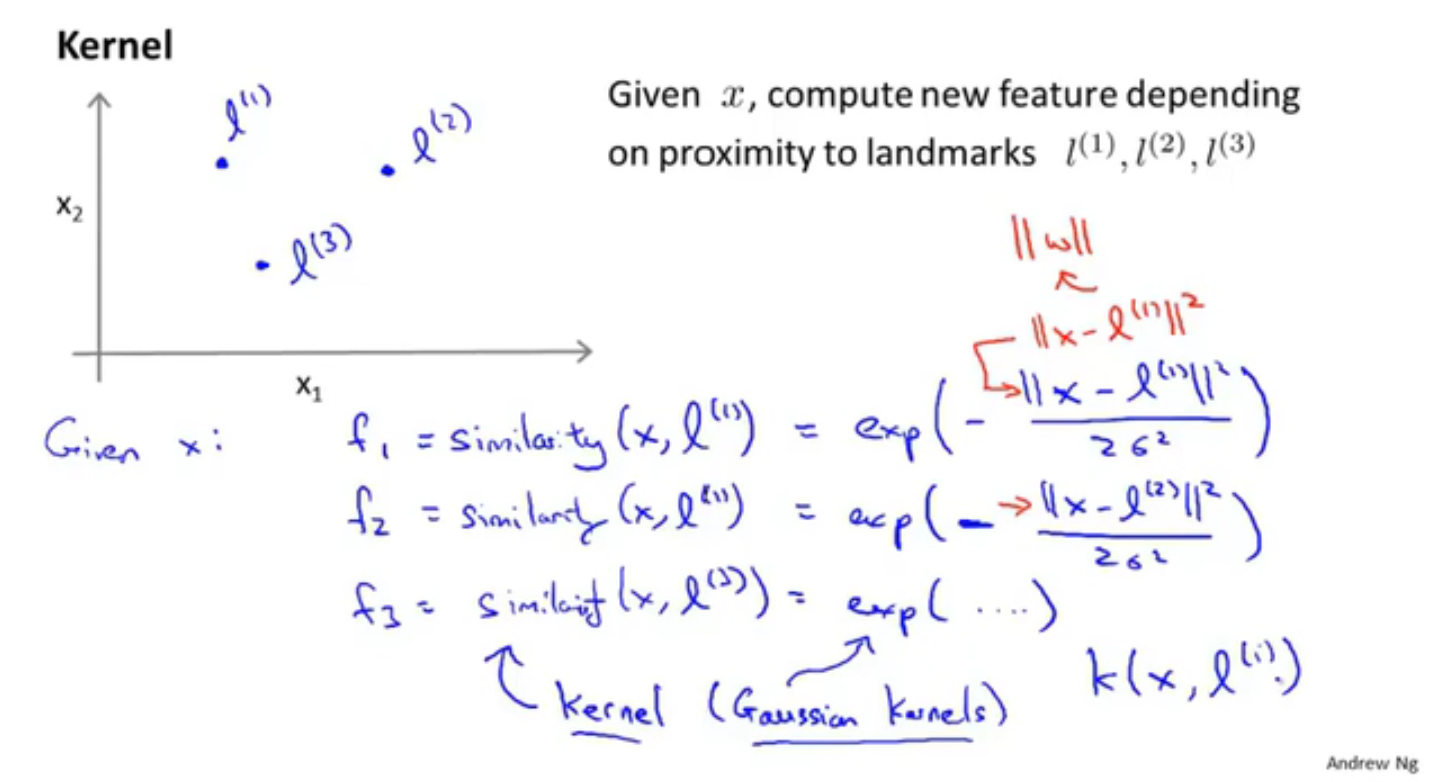 Kernel
Given x, compute new feature depending
on proximity to landmarks l⁽¹⁾, l⁽²⁾, l⁽³⁾
l⁽¹⁾
l⁽²⁾
x₂
l⁽³⁾
x₁
||w||
||x - l⁽¹⁾||²
Given x:
f₁ = similarity (x, l⁽¹⁾) = exp(- ||x - l⁽¹⁾||² / 2σ²)
f₂ = similarity (x, l⁽¹⁾) = exp(- ||x - l⁽²⁾||² / 2σ²)
f₃ = similarity (x, l⁽³⁾) = exp( ....)
kernel (Gaussian kernels)
k(x, l⁽ⁱ⁾)
Andrew Ng